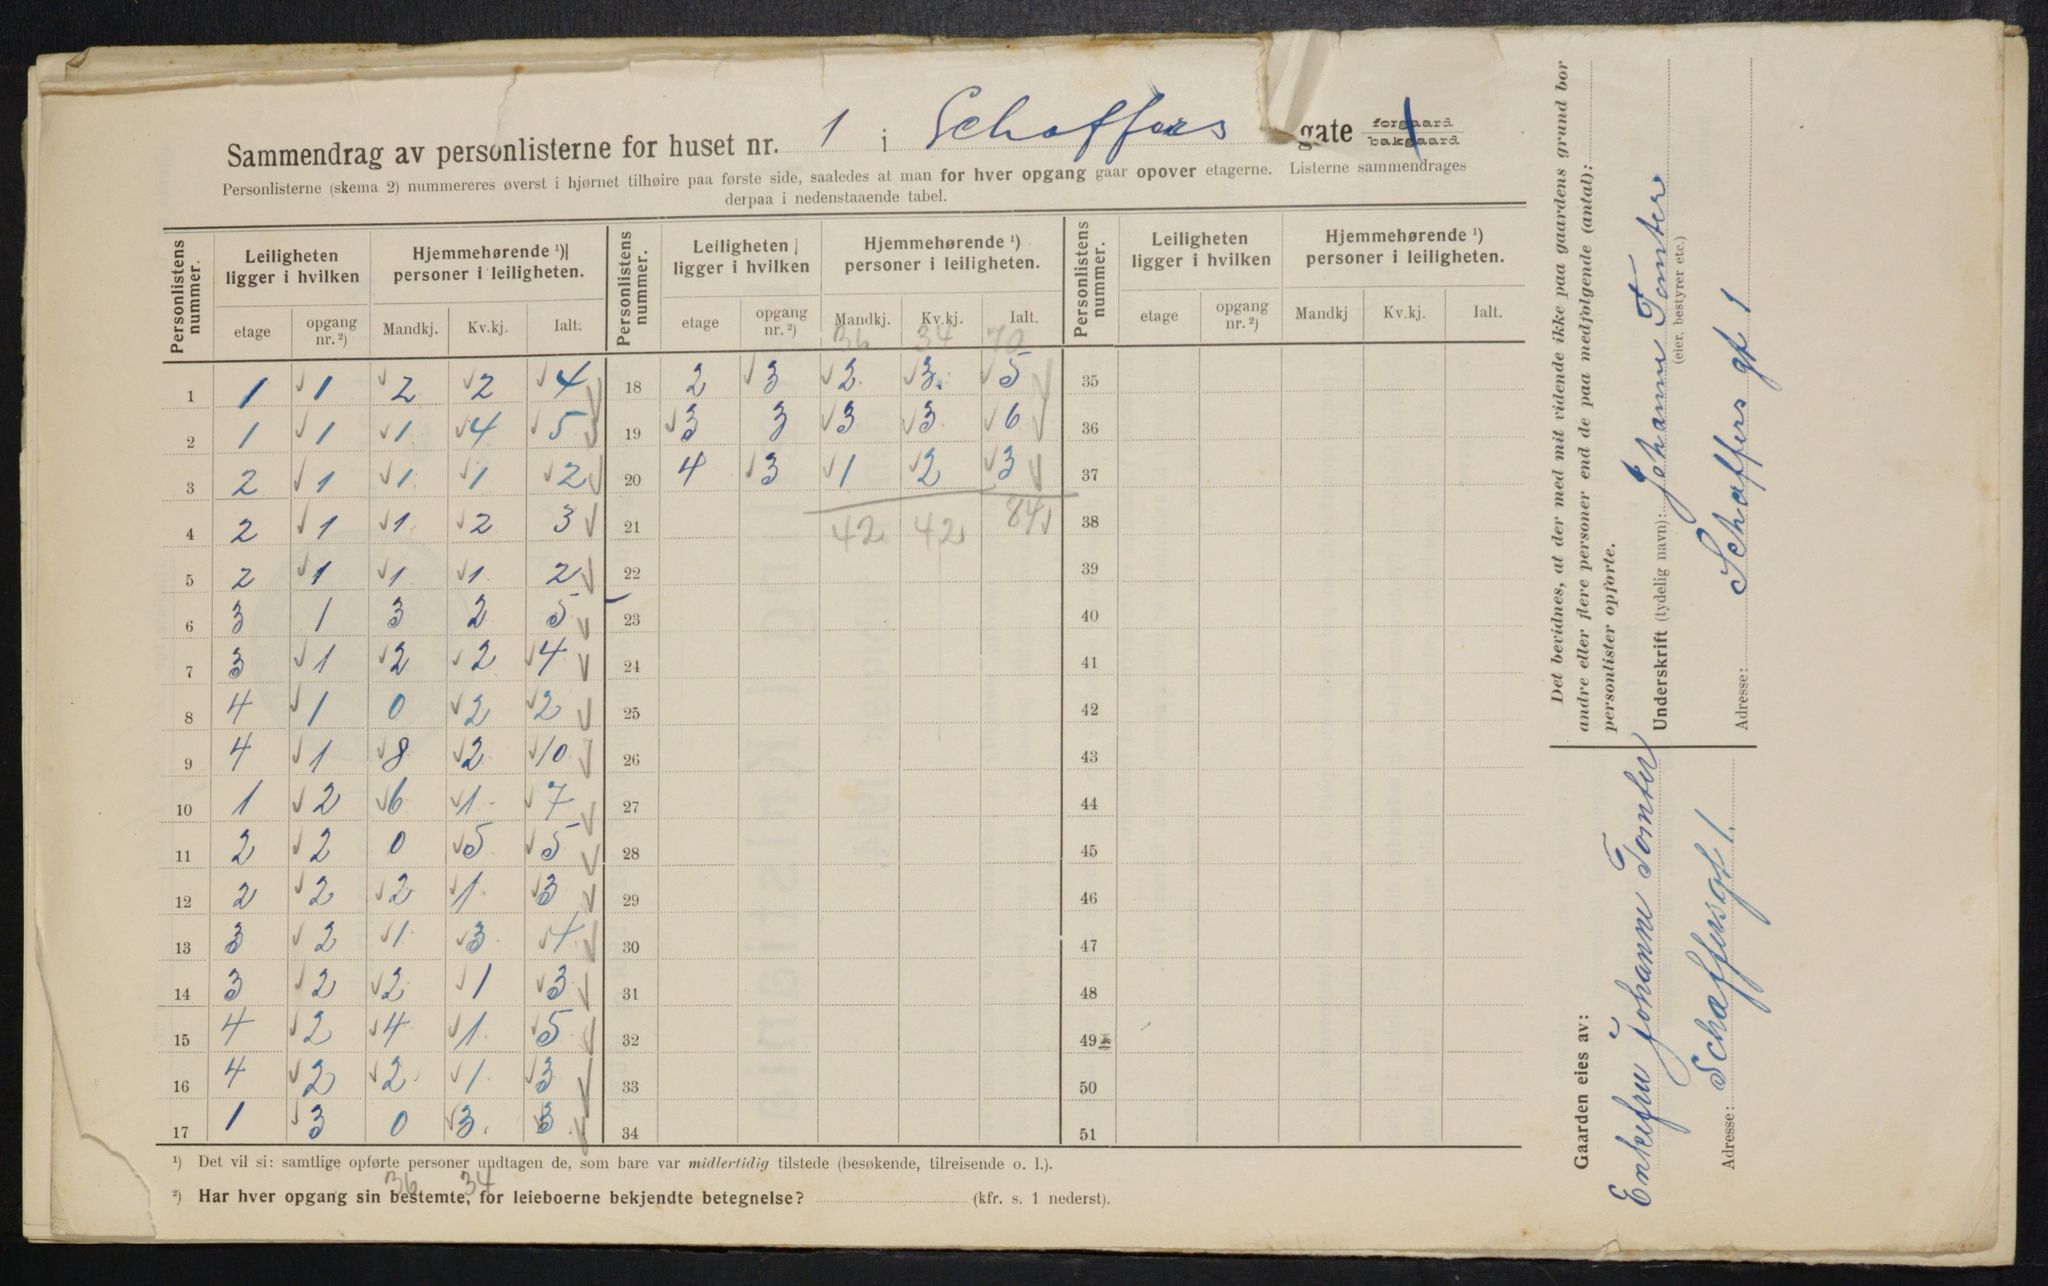 Sammendrag av personlisterne for huset nr. 1 i Schaffers gate forgaard bakgaard
Personlisterne (skema 2) nummereres øverst i hjørnet tilhøire paa første side, saaledes at man for hver opgang gaar opover etagerne. Listerne sammendrages
derpaa i nedenstaaende tabel.
Personlistens nummer. Leiligheten ligger i hvilken Hjemmehørende ¹) personer i leiligheten. Personlistens nummer. Leiligheten ligger i hvilken Hjemmehørende ¹) personer i leiligheten. Personlistens nummer. Leiligheten ligger i hvilken Hjemmehørende ¹) personer i leiligheten.
etage opgang nr. ²) Mandkj. Kv.kj. Ialt. etage opgang nr. ²) Mandkj. Kv.kj. Ialt. etage opgang nr. ²) Mandkj Kv.kj. Ialt.
36 34 70
1 1 1 2 2 4 18 2 3 2 3 5 35
2 1 1 1 4 5 19 3 3 3 3 6 36
3 2 1 1 1 2 20 4 3 1 2 3 37
4 2 1 1 2 3 21 42 42 84 38
5 2 1 1 1 2 22 39
6 3 1 3 2 5 23 40
7 3 1 2 2 4 24 41
8 4 1 0 2 2 25 42
9 4 1 8 2 10 26 43
10 1 2 6 1 7 27 44
11 2 2 0 5 5 28 45
12 2 2 2 1 3 29 46
13 3 2 1 3 4 30 47
14 3 2 2 1 3 31 48
15 4 2 4 1 5 32 49
16 4 2 2 1 3 33 50
17 1 3 0 3 3 34 51
¹) Det vil si: samtlige opførte personer undtagen de, som bare var midlertidig tilstede (besøkende, tilreisende o. l.).
36 34
²) Har hver opgang sin bestemte, for leieboerne bekjendte betegnelse? (kfr. s. 1 nederst).
Det bevidnes, at der med mit vidende ikke paa gaardens grund bor
andre eller flere personer end de paa medfølgende (antal):
personlister opførte.
Underskrift (tydelig navn): Johanne Tomter
(eier, bestyrer etc.)
Adresse: Schaffers gt 1
Gaarden eies av:
Enkefru Johanne Tomter
Adresse: Schaffersgt 1.